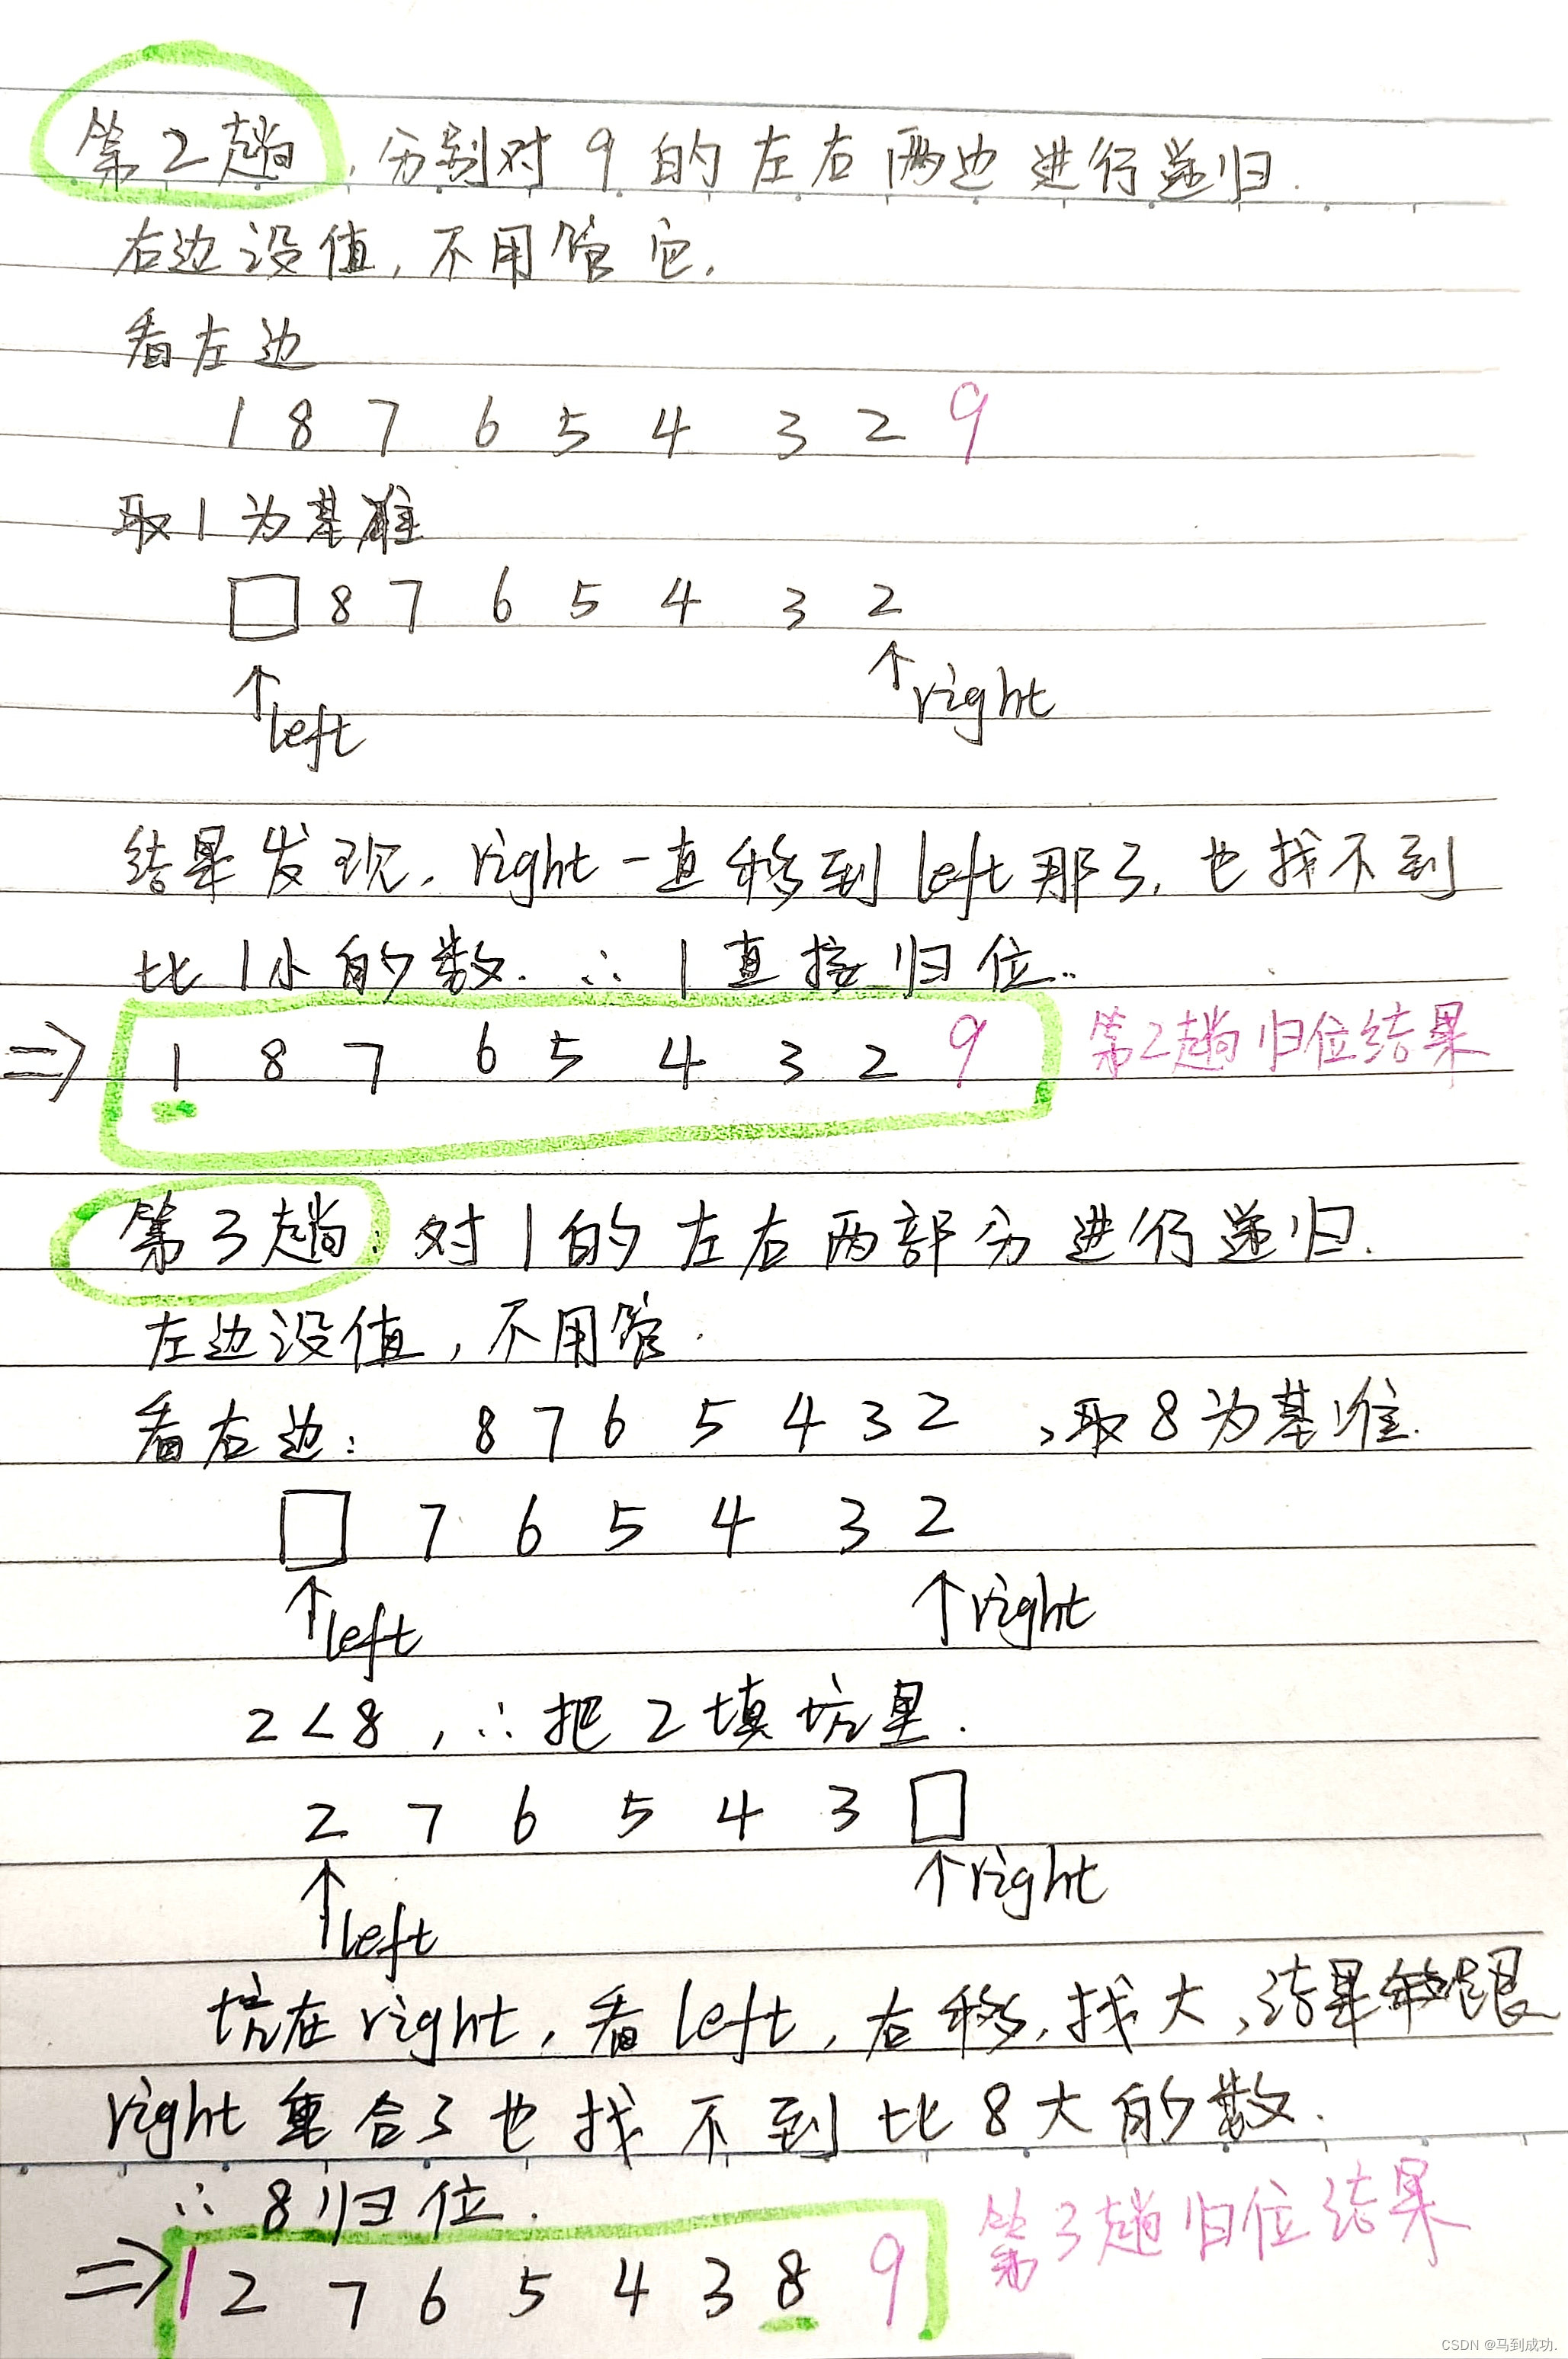 第2趟，分别对9的左右两边进行递归.
右边没值，不用管它.
看左边
1 8 7 6 5 4 3 2 9
取1为基准
□ 8 7 6 5 4 3 2
↑left ↑right
结果发现，right一直移到left那了，也找不到
比1小的数. ∴ 1直接归位..
=> 1 8 7 6 5 4 3 2 9 第2趟归位结果
第3趟：对1的左右两部分进行递归.
左边没值，不用管.
看右边： 8 7 6 5 4 3 2 ，取8为基准.
□ 7 6 5 4 3 2
↑left ↑right
2<8，∴把2填坑里.
2 7 6 5 4 3 □
↑left ↑right
坑在right，看left，右移，找大，结果跟
right重合了也找不到比8大的数.
∴ 8归位.
=> 1 2 7 6 5 4 3 8 9 第3趟归位结果
CSDN @马到成功.